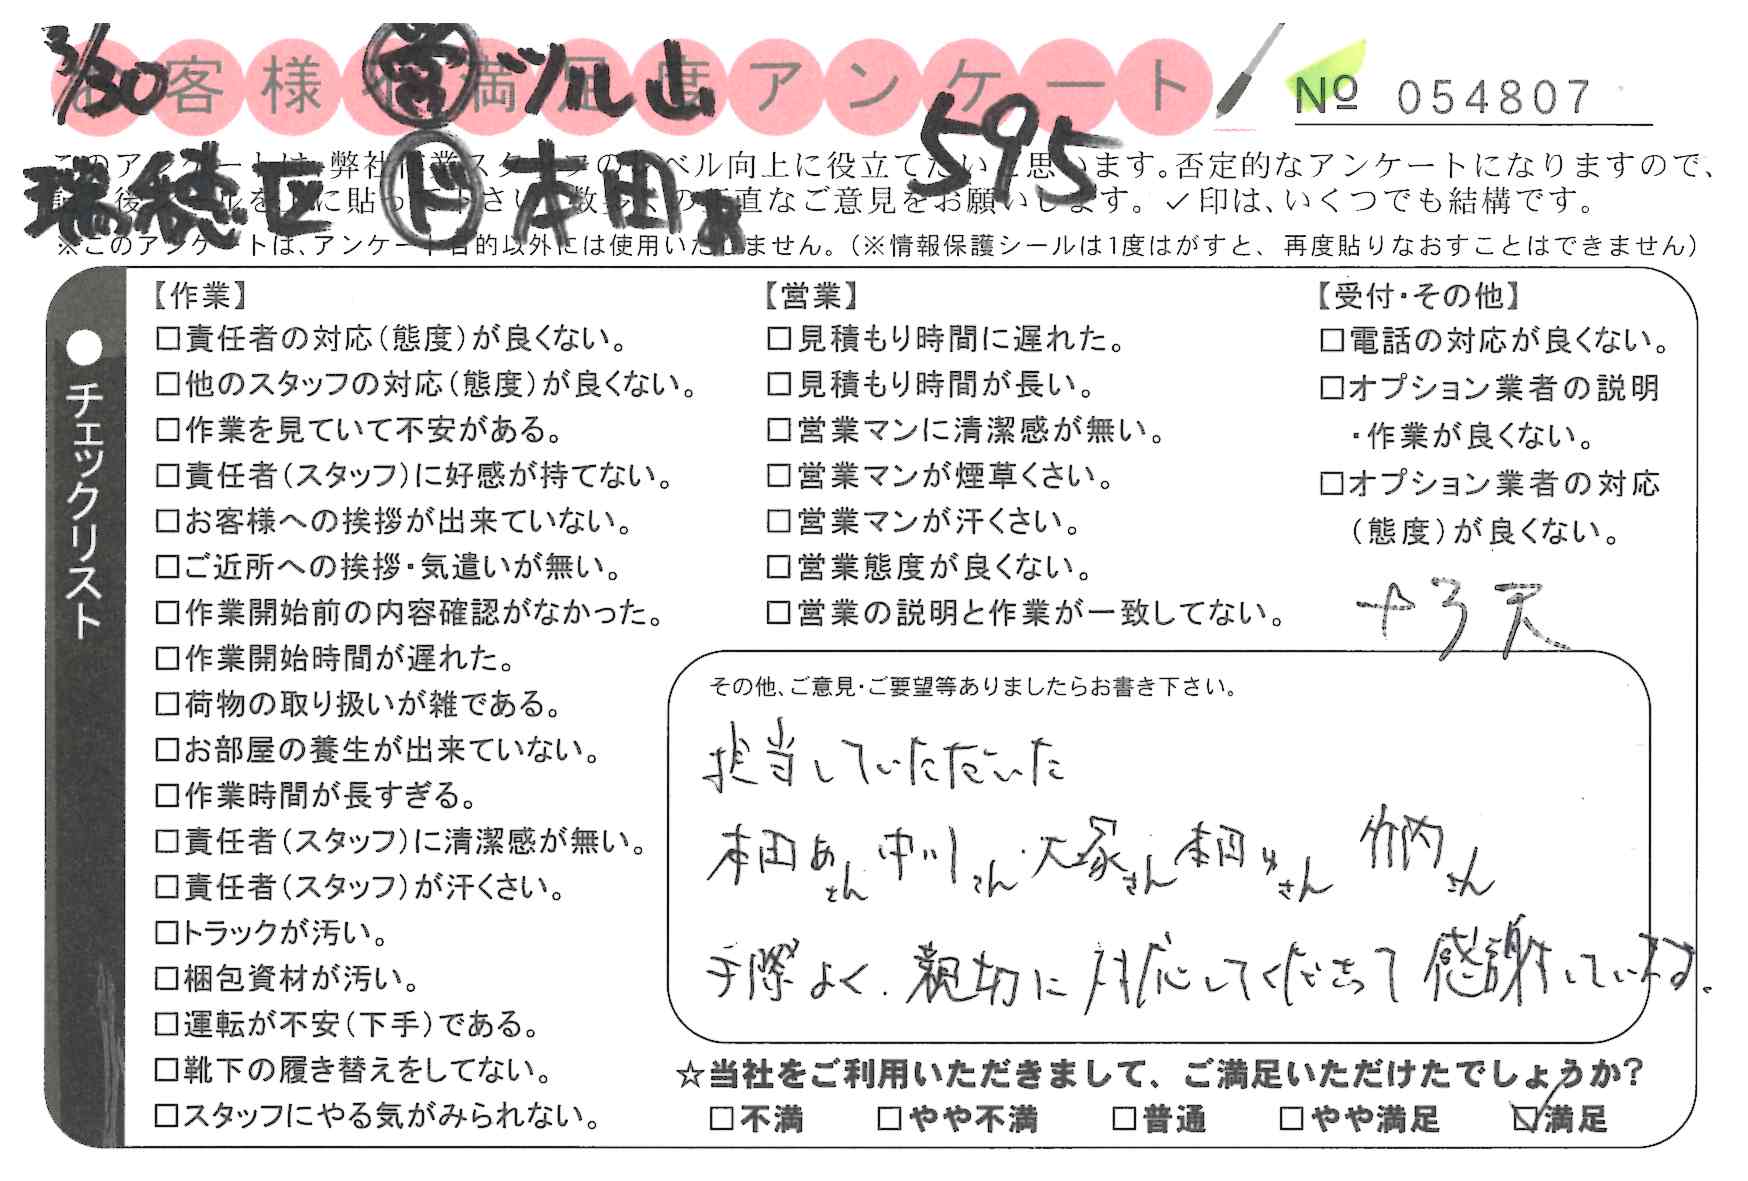 3/30 営 ツル山
お客様不満足度アンケート
№ 054807
595
瑞穂区 ド 本田あ
このアンケートは、弊社作業スタッフのレベル向上に役立てたいと思います。否定的なアンケートになりますので、
後シールを上に貼って下さい。数多くの正直なご意見をお願いします。✓印は、いくつでも結構です。
※このアンケートは、アンケート目的以外には使用いたしません。(※情報保護シールは1度はがすと、再度貼りなおすことはできません)
●チェックリスト
【作業】
□責任者の対応(態度)が良くない。
□他のスタッフの対応(態度)が良くない。
□作業を見ていて不安がある。
□責任者(スタッフ)に好感が持てない。
□お客様への挨拶が出来ていない。
□ご近所への挨拶・気遣いが無い。
□作業開始前の内容確認がなかった。
□作業開始時間が遅れた。
□荷物の取り扱いが雑である。
□お部屋の養生が出来ていない。
□作業時間が長すぎる。
□責任者(スタッフ)に清潔感が無い。
□責任者(スタッフ)が汗くさい。
□トラックが汚い。
□梱包資材が汚い。
□運転が不安(下手)である。
□靴下の履き替えをしてない。
□スタッフにやる気がみられない。
【営業】
□見積もり時間に遅れた。
□見積もり時間が長い。
□営業マンに清潔感が無い。
□営業マンが煙草くさい。
□営業マンが汗くさい。
□営業態度が良くない。
□営業の説明と作業が一致してない。
【受付・その他】
□電話の対応が良くない。
□オプション業者の説明
・作業が良くない。
□オプション業者の対応
(態度)が良くない。
その他、ご意見・ご要望等ありましたらお書き下さい。
担当していただいた
本田あさん 中川さん・大塚さん 本田りさん 竹内さん
手際よく、親切に対応してくださって感謝しています。
☆当社をご利用いただきまして、ご満足いただけたでしょうか?
□不満 □やや不満 □普通 □やや満足 ☑満足